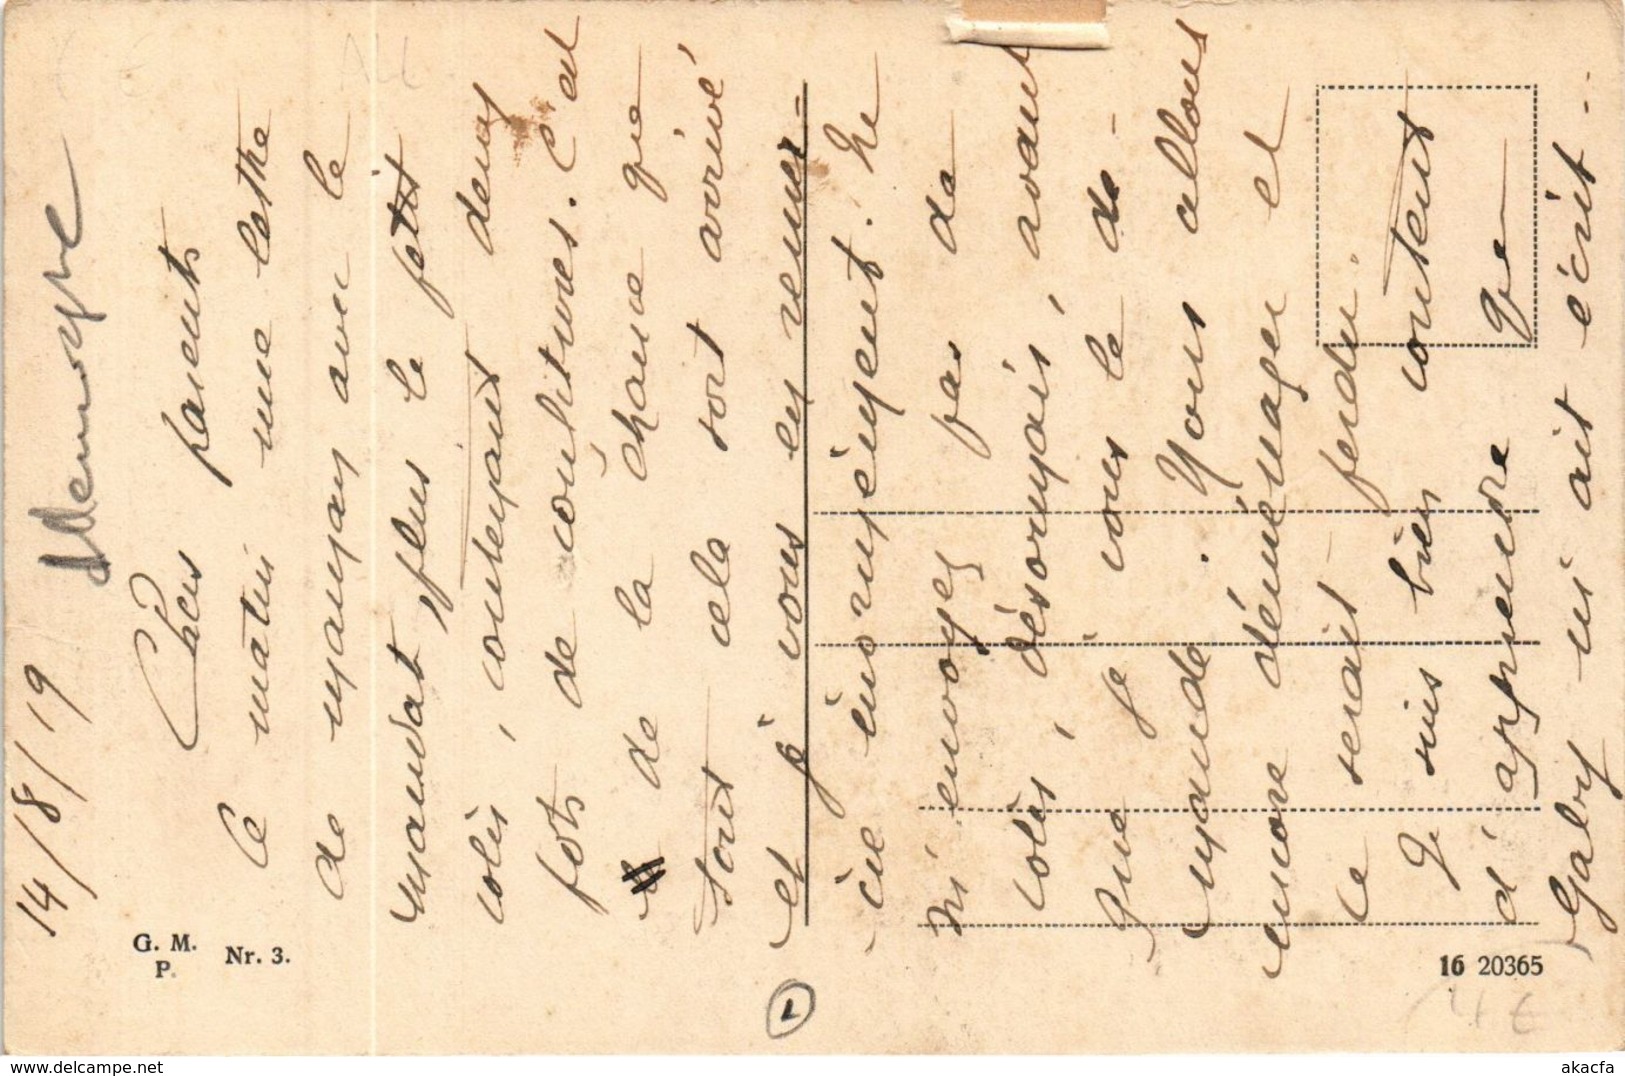 14/8/19
Allemagne
Chers parents
Ce matin une lettre
de maman avec le
mandat plus le petit
colis, contenant deux
pots de confitures. C'est
de la chance que
tout cela soit arrivé
et je vous en remer-
cie énormément. Ne
m'envoyez pas de
colis, désormais, avant
que je vous le de-
mande. Nous allons
encore déménager et
ce serait perdu.
Je suis bien content
d'apprendre que
Gaby ai ait écrit..
G. M.
P.
Nr. 3.
16 20365
L
4€
akacfa